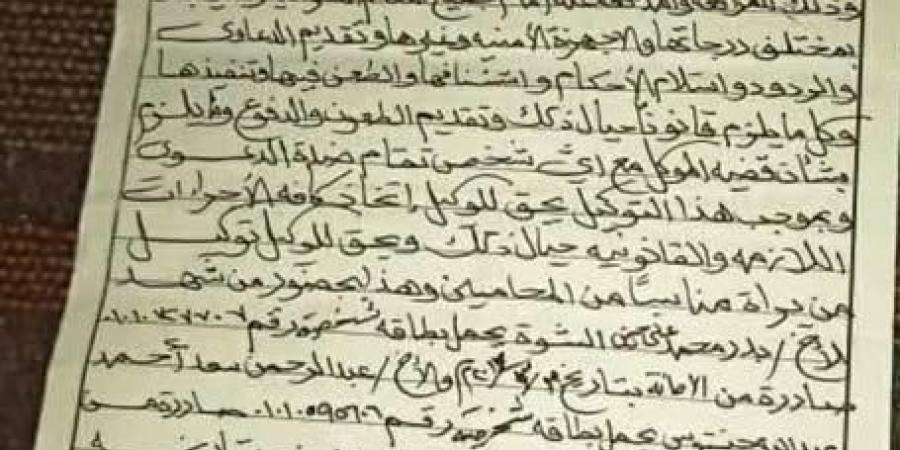 وذلك للمرافعة والمدافعة عنه أمام جميع
بمختلف درجاتها والاجهزة الأمنيه وغيرها وتقديم الدعاوى
والردود واستلام الأحكام واستئنافها والطعن فيها وتنفيذها
وكل ما يلزم قانوناً حيال ذلك وتقديم الطعون والدفوع وما يلزم
بشأن قضيه الموكل مع اي شخص تقام ضده الدعوى
وبموجب هذا التوكيل يحق للوكيل إتخاذ كافه الأجراءات
اللازمه والقانونيه حيال ذلك ويحق للوكيل توكيل
من يراة مناسباً من المحاميين وهذا بحضور من شهد
الاخ/ بدر محمد علي الشوة يحمل بطاقه شخصية رقم
صادرة من الامانة بتاريخ والاخ/ عبدالرحمن سعد أحمد
يحمل بطاقه شخصيه رقم ٠١٠١٠٥٩٥٦٠٦ صادرة من